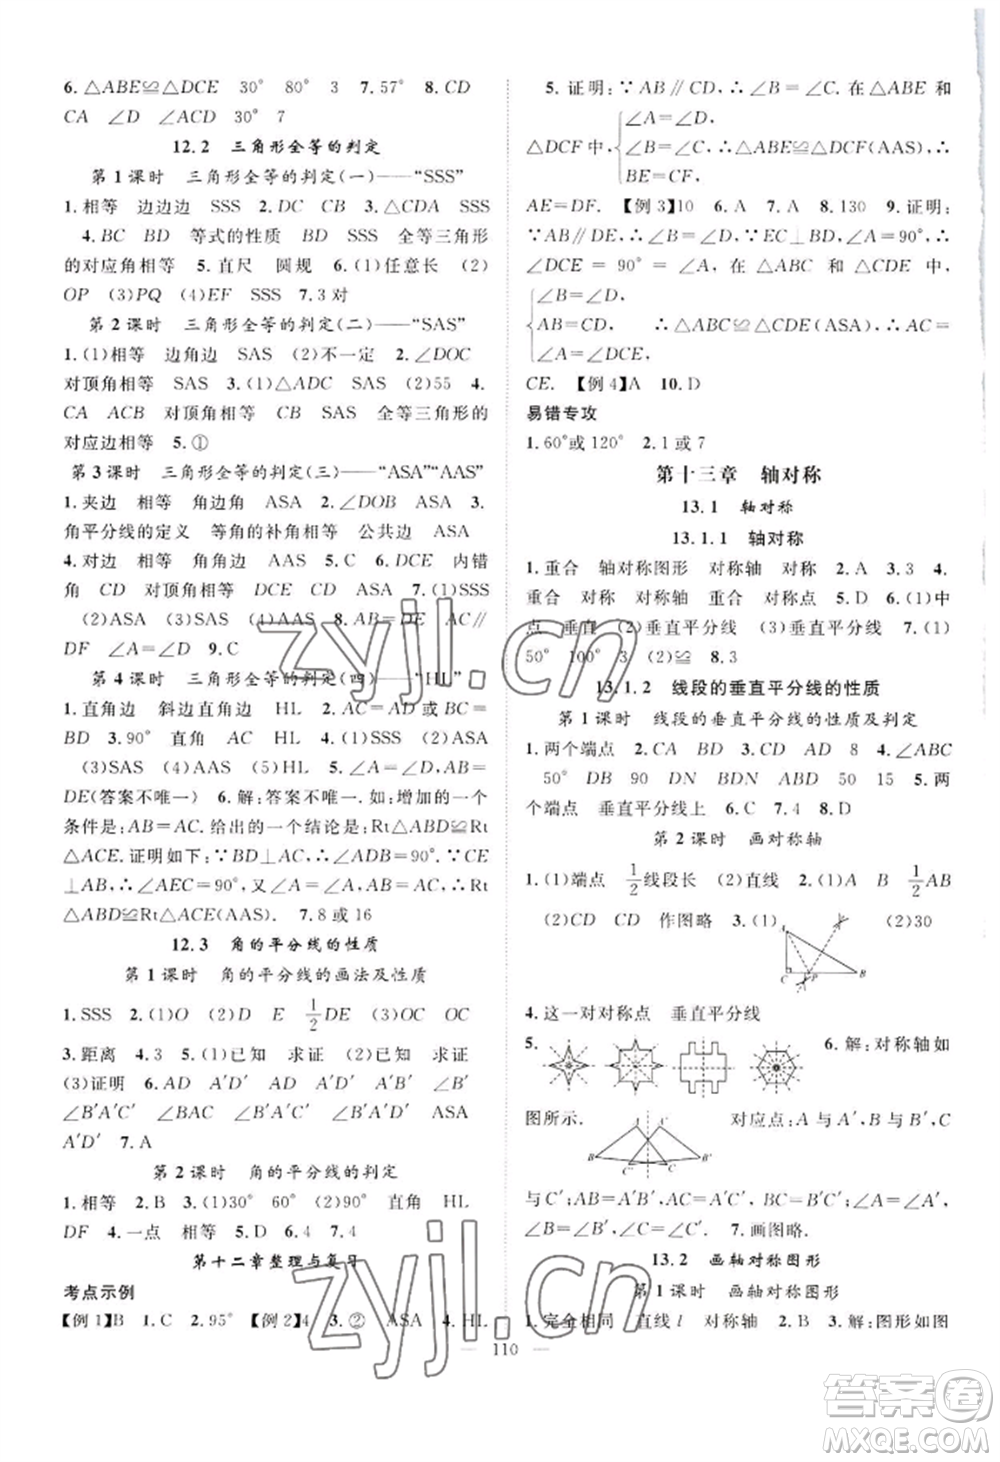 6. △ABE≌△DCE 30° 80° 3 7. 57° 8. CD
CA ∠D ∠ACD 30° 7
12.2 三角形全等的判定
第1课时 三角形全等的判定(一)——“SSS”
1. 相等 边边边 SSS 2. DC CB 3. △CDA SSS
4. BC BD 等式的性质 BD SSS 全等三角形
的对应角相等 5. 直尺 圆规 6. (1)任意长 (2)
OP (3)PQ (4)EF SSS 7. 3 对
第2课时 三角形全等的判定(二)——“SAS”
1. (1)相等 边角边 SAS (2)不一定 2. ∠DOC
对顶角相等 SAS 3. (1)△ADC SAS (2)55 4.
CA ACB 对顶角相等 CB SAS 全等三角形的
对应边相等 5. ①
第3课时 三角形全等的判定(三)——“ASA”“AAS”
1. 夹边 相等 角边角 ASA 2. ∠DOB ASA 3.
角平分线的定义 等角的补角相等 公共边 ASA
4. 对边 相等 角角边 AAS 5. C 6. DCE 内错
角 CD 对顶角相等 DCE CD ASA 7. (1)SSS
(2)ASA (3)SAS (4)AAS 8. AB=DE AC∥
DF ∠A=∠D
第4课时 三角形全等的判定(四)——“HL”
1. 直角边 斜边直角边 HL 2. AC=BD 或 BC=
BD 3. 90° 直角 AC HL 4. (1)SSS (2)ASA
(3)SAS (4)AAS (5)HL 5. ∠A=∠D 或 AB=
DE(答案不唯一) 6. 解:答案不唯一. 如:增加的一
个条件是:AB=AC. 给出的一个结论是:Rt△ABD≌Rt
△ACE. 证明如下:∵BD⊥AC,∴∠ADB=90°. ∵CE
⊥AB,∴∠AEC=90°,又∵∠A=∠A,AB=AC,∴Rt
△ABD≌Rt△ACE(AAS). 7. 8 或 16
12.3 角的平分线的性质
第1课时 角的平分线的画法及性质
1. SSS 2. (1)O (2)D E 1/2DE (3)OC OC
3. 距离 4. 3 5. (1)已知 求证 (2)已知 求证
(3)证明 6. AD A′D′ AD A′D′ B′ B′E′
∠B′A′C′ ∠BAC ∠B′A′D′ ASA AD
A′D′ 7. A
第2课时 角的平分线的判定
1. 相等 2. B 3. (1)30° 60° (2)90° 直角 HL
DF 4. 一点 相等 5. D 6. 4 7. 4
第十二章整理与复习
考点示例
【例1】B 1. C 2. 95° 【例2】4 3. ② ASA 4. HL
5. 证明:∵AB∥CD,∴∠B=∠C. 在△ABE 和
△DCF 中,
∠A=∠D,
∠B=∠C,
BE=CF,
∴△ABE≌△DCF(AAS),∴
AE=DF. 【例3】10 6. A 7. A 8. 130 9. 证明:
∵AB∥DE,∴∠B=∠E,∵EC⊥BD,∠A=90°,∴
∠DCE = 90° = ∠A, 在 △ABC 和 △CDE 中,
∠B=∠E,
AB=CD,
∠A=∠DCE.
∴△ABC≌△CDE(ASA),∴AC=
CE. 【例4】A 10. D
易错专攻
1. 60°或 120° 2. 1 或 7
第十三章 轴对称
13.1 轴对称
13.1.1 轴对称
1. 重合 轴对称图形 对称轴 对称 2. A 3. 3 4.
重合 对称 对称轴 重合 对称点 5. D 6. (1)中
点 垂直 (2)垂直平分线 (3)垂直平分线 7. (1)
50° 100° 3 (2)≌ 8. 3
13.1.2 线段的垂直平分线的性质
第1课时 线段的垂直平分线的性质及判定
1. 两个端点 2. CA BD 3. CD AD 8 4. ∠ABC
50° DB 90 DN BDN AND 50 15 5. 两
个端点 垂直平分线上 6. C 7. 4 8. D
第2课时 画对称轴
1. (1)端点 1/2线段长 (2)直线 2. (1)A B 1/2AB
(2)CD CD 作图略 3. (1) (2)30
A
C P B
4. 这一对对称点 垂直平分线
5. 6. 解:对称轴如
图所示. 对应点:A 与 A′,B 与 B′,C
A A′
B C′ C B′
与 C′;AB=A′B′,AC=A′C′,BC=B′C′,∠A=∠A′,
∠B=∠B′,∠C=∠C′. 7. 画图略.
13.2 画轴对称图形
第1课时 画轴对称图形
1. 完全相同 直线 l 对称轴 2. B 3. 解:图形如图
110
zyjl.cn
zyjl.cn
答案圈
MXQE.COM